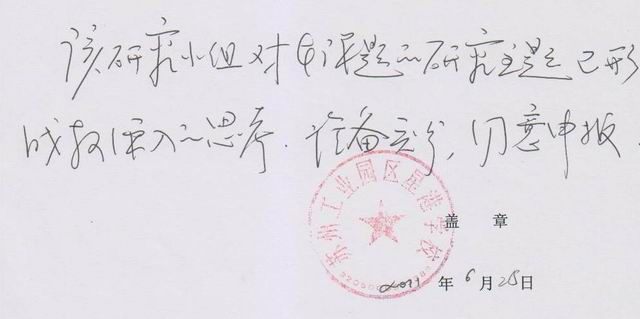 该研究小组对本课题的研究主题已形
成较深入的思考.准备充分,同意申报.
苏州工业园区星港学校
盖 章
2011 年 6 月 28 日